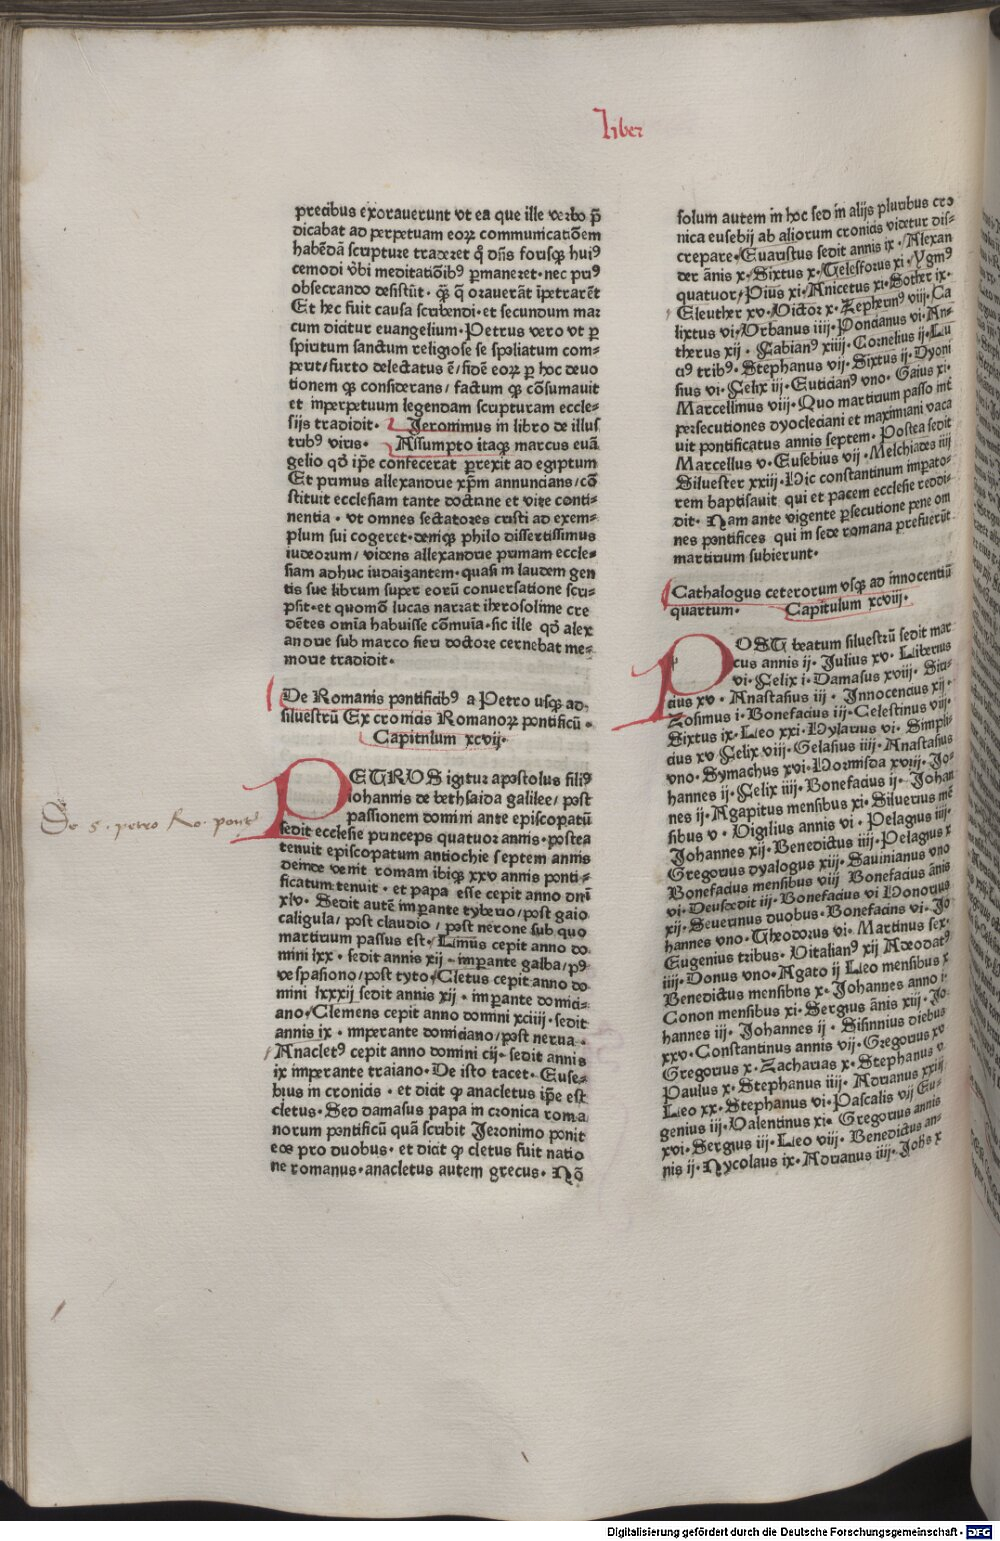 Liber
precibus exorauerunt vt ea que ille verbo p̄
dicabat ad perpetuam eoꝝ communicatiōem
habēdā scripture traderet qd̛ dn̄s forisqꝫ huiꝰ
cemodi v̄bi meditatiōibꝰ ꝑmaneret· nec priꝰ
obsecrando desistūt· qꝫ qd̛ orauerāt īpetrarēt
Et hec fuit causa scribendi· et secundum mar
cum dicitur euangelium· Petrus vero vt ꝑ
spiritum sanctum religiose se spoliatum com-
perit/ furto delectatus ē/ fidē eoꝝ ꝑ hoc deuo
tionem qꝫ considerans/ factum qꝫ cōsumauit
et inperpetuum legendam scripturam eccle-
sijs tradidit· Jeronimus in libro de illus
tribꝰ viris· Assumpto itaqꝫ marcus euā
gelio qd̛ ip̄e confecerat ꝑrexit ad egiptum
Et primus allexandrie xp̄m annuncians/ cō
stituit ecclesiam tante doctrine et vite conti-
nentia· vt omnes sectatores cristi ad exem-
plum sui cogeret· deniqꝫ philo dissertissimus
iudeorum/ videns allexandrie primam eccle-
siam adhuc iudaizantem· quasi in laudem gen
tis sue librum super eorū conuersatione scri-
psit· et quomō lucas narrat iherosolime cre
dētes omīa habuisse cōmuīa· sic ille qd̛ alex
andrie sub marco fieri doctore cernebat me-
morie tradidit·
De Romanis pontificibꝰ a Petro vsqꝫ ad
siluestrū Ex cronicis Romanoꝝ pontificū·
Capitnlum xcvij·
De s. petro Ro. pont̄
PETRVS igitur apostolus filiꝰ
iohannis de bethsaida galilee/ post
passionem domini ante episcopatū
sedit ecclesie princeps quatuor annis· postea
tenuit episcopatum antiochie septem annis
deinde venit romam ibiqꝫ xxv annis ponti-
ficatum tenuit· et papa esse cepit anno dn̄i
xlv· Sedit autē imꝑante tyberio/ post gaio
caligula/ post claudio/ post nerone sub quo
martirium passus est· Linus cepit anno do
mini lxx· sedit annis xij· imꝑante galba/ pꝰ
vespasiono/ post tyto/ Cletus cepit anno do
mini lxxxij sedit annis xij· imꝑante domici-
ano/ Clemens cepit anno domini xciiij· sedit
annis ix· imperante domiciano/ post nerua·
Anacletꝰ cepit anno domini cij· sedit annis
ix imperante traiano· De isto tacet· Euse-
bius in cronicis· et dicit ꝙ anacletus ip̄e est
cletus· Sed damasus papa in cronica roma
norum pontificū quā scribit Jeronimo ponit
eos pro duobus· et dicit ꝙ cletus fuit natio
ne romanus· anacletus autem grecus· Nō
solum autem in hoc sed in alijs pluribus cro
nica eusebij ab aliorum cronicis videtur dis-
crepare· Euaristus sedit annis ix· Alexan
der ānis x· Sixtus x· Telesforus xi· Ygmꝰ
quatuor/ Pius xi· Anicetus xi· Sother ix·
Eleuther xv· Victor x· Zepherinꝰ viij· Ca
lixtus vi· Vrbanus iiij· Poncianus vi· An-
therus xij· Fabianꝰ xiiij· Cornelius ij· Lu
ciꝰ tribꝰ· Stephanus vij· Sixtus ij· Dyoni
sius vi· Felix iij· Euticianꝰ vno· Gaius xi·
Marcellinus viij· Quo martirium passo int̄
persecutiones dyocleciani et maximiani vaca
uit pontificatus annis septem· Postea sedit
Marcellus v· Eusebius vij· Melchiades iiij
Siluester xxiij· Hic constantinum imꝑato-
rem baptisauit qui et pacem ecclesie reddi-
dit· Nam ante vigente ꝑsecutione pene om
nes pontifices qui in sede romana prefuerūt
martirium subierunt·
Cathalogus ceterorum vsqꝫ ad innocentiū
quartum· Capitulum xcviij·
POST beatum siluestrū sedit mar
cus annis ij· Julius xv· Liberius
vi· Felix i· Damasus xviij· Siri-
cius xv· Anastasius iij· Innocencius xij·
Zosimus i· Bonefacius iij· Celestinus viij·
Sixtus ix· Leo xxi· Hylarius vi· Simpli-
cius xv Felix viij· Gelasius iiij· Anastasius
vno· Symachus xvi· Hormisda xviij· Jo-
hannes ij· Felix iiij· Bonefacius ij· Johan
nes ij· Agapitus mensibus xi· Siluerius mē
sibus v· Vigilius annis vi· Pelagius iiij·
Johannes xij· Benedictus iiij· Pelagius x
Gregorius dyalogus xiij· Sauinianus vno
Bonefacius mensibus viij Bonefacius ānis
vi· Deusdedit iij· Bonefacius vi Honorius
xij· Seuerinus duobus· Bonefacins vi· Jo
hannes vno· Theodorus vi· Martinus sex·
Eugenius tribus· Vitalianꝰ xij Adeodatꝰ
iiij· Donus vno· Agato ij Leo mensibus x
Benedictus mensibns x· Johannes anno i·
Conon mensibus xi· Sergius ānis xiij· Jo-
hannes iij· Johannes ij· Sisinnius diebus
xxv· Constantinus annis vij· Gregorius xv
Gregorius x· Zacharias x· Stephanus v
Paulus x· Stephanus iiij· Adrianus xxiij
Leo xx· Stephanus vi· Pascalis vij Eu-
genius iij· Valentinus xi· Gregorius annis
xvi· Sergius iij· Leo viij· Benedictus an-
nis ij· Nycolaus ix· Adrianus iiij· Johs x
Digitalisierung gefördert durch die Deutsche Forschungsgemeinschaft - DFG